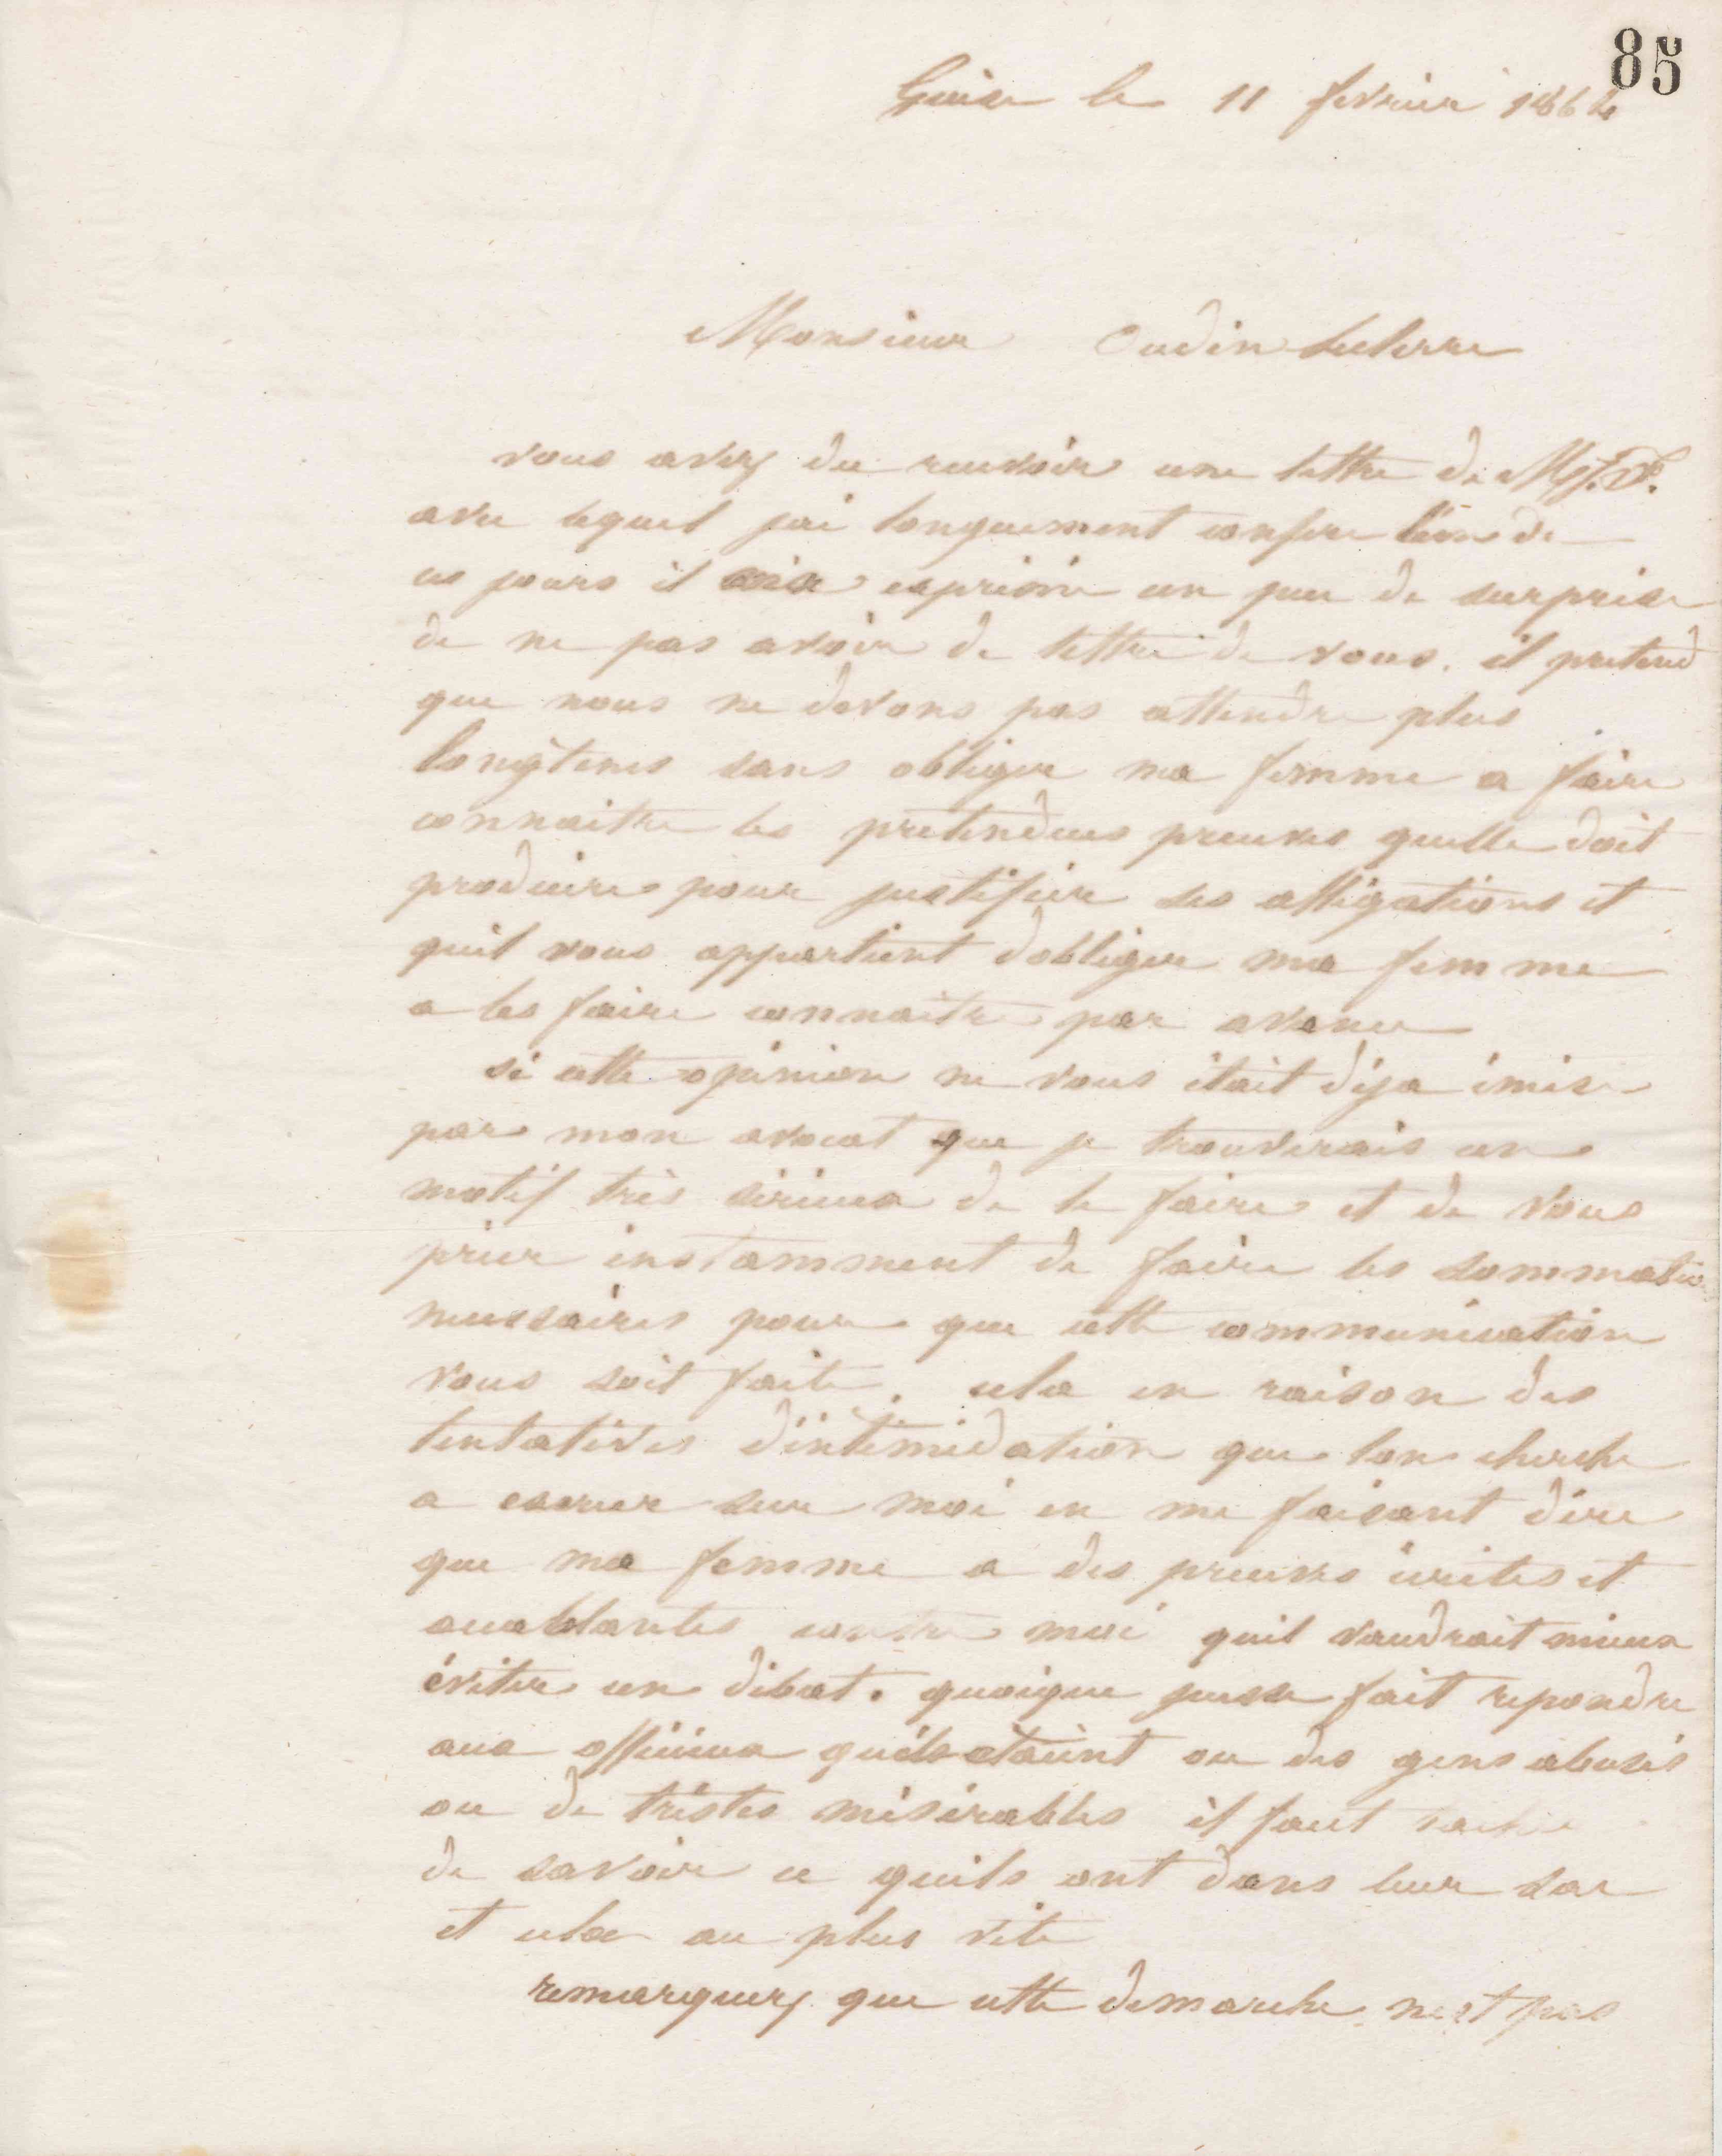 85
Guise le 11 fevrier 1864
Monsieur Oudin Leclerre
vous avez du recevoir une lettre de M J. F.
avec lequel jai longuement confere l'un de
ces jours il exprime un peu de surprise
de ne pas avoir de lettre de vous. il pretend
que nous ne devons pas attendre plus
longtems sans obliger ma femme a faire
connaitre les pretendues preuves quelle doit
produire pour justifier ses alligations et
quil vous appartient dobliger ma femme
a les faire connaitre par avance
si cette opinion ne vous était déja émise
par mon avocat que je trouverais un
motif très sérieux de le faire et de vous
prier instamment de faire les sommations
necessaires pour que cette communication
vous soit faite. cela en raison des
tentatives d'intimidation que lon cherche
a exercer sur moi en me faisant dire
que ma femme a des preuves écrites et
accablantes contre moi quil vaudrait mieux
éviter un débat. quoique jeusse fait repondre
aux officieux quils étaient ou des gens abusés
ou de tristes misérables il faut tacher
de savoir ce quils ont dans leur sac
et cela au plus vite
remarquez que cette demarche nest pas